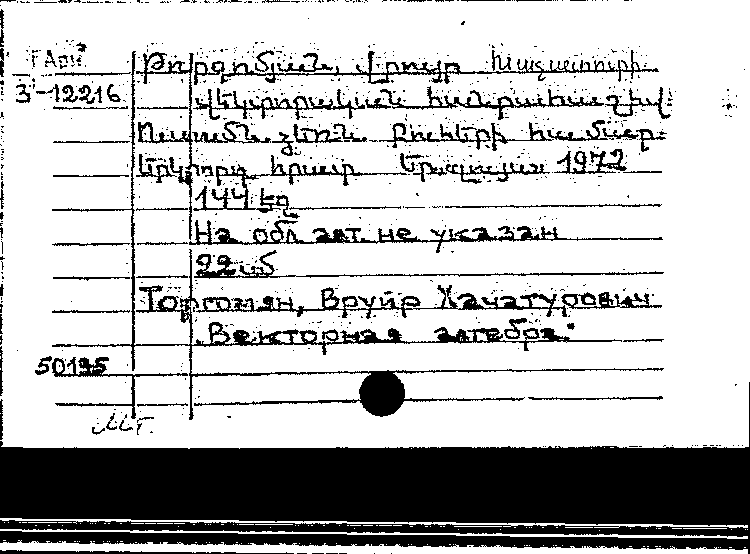 ГАрм
З-12216
Թորգոմյան, Վրույր Խաչատուրի
Վեկտորական հանրահաշիվ:
Ուսումն. ձեռն. բուհերի համար:
Երկրորդ հրատ Երևան 1972
144 էջ
На обл авт. не указан
22 սմ
Торгомян, Вруйр Хачатурович
„Векторная алгебра."
50195